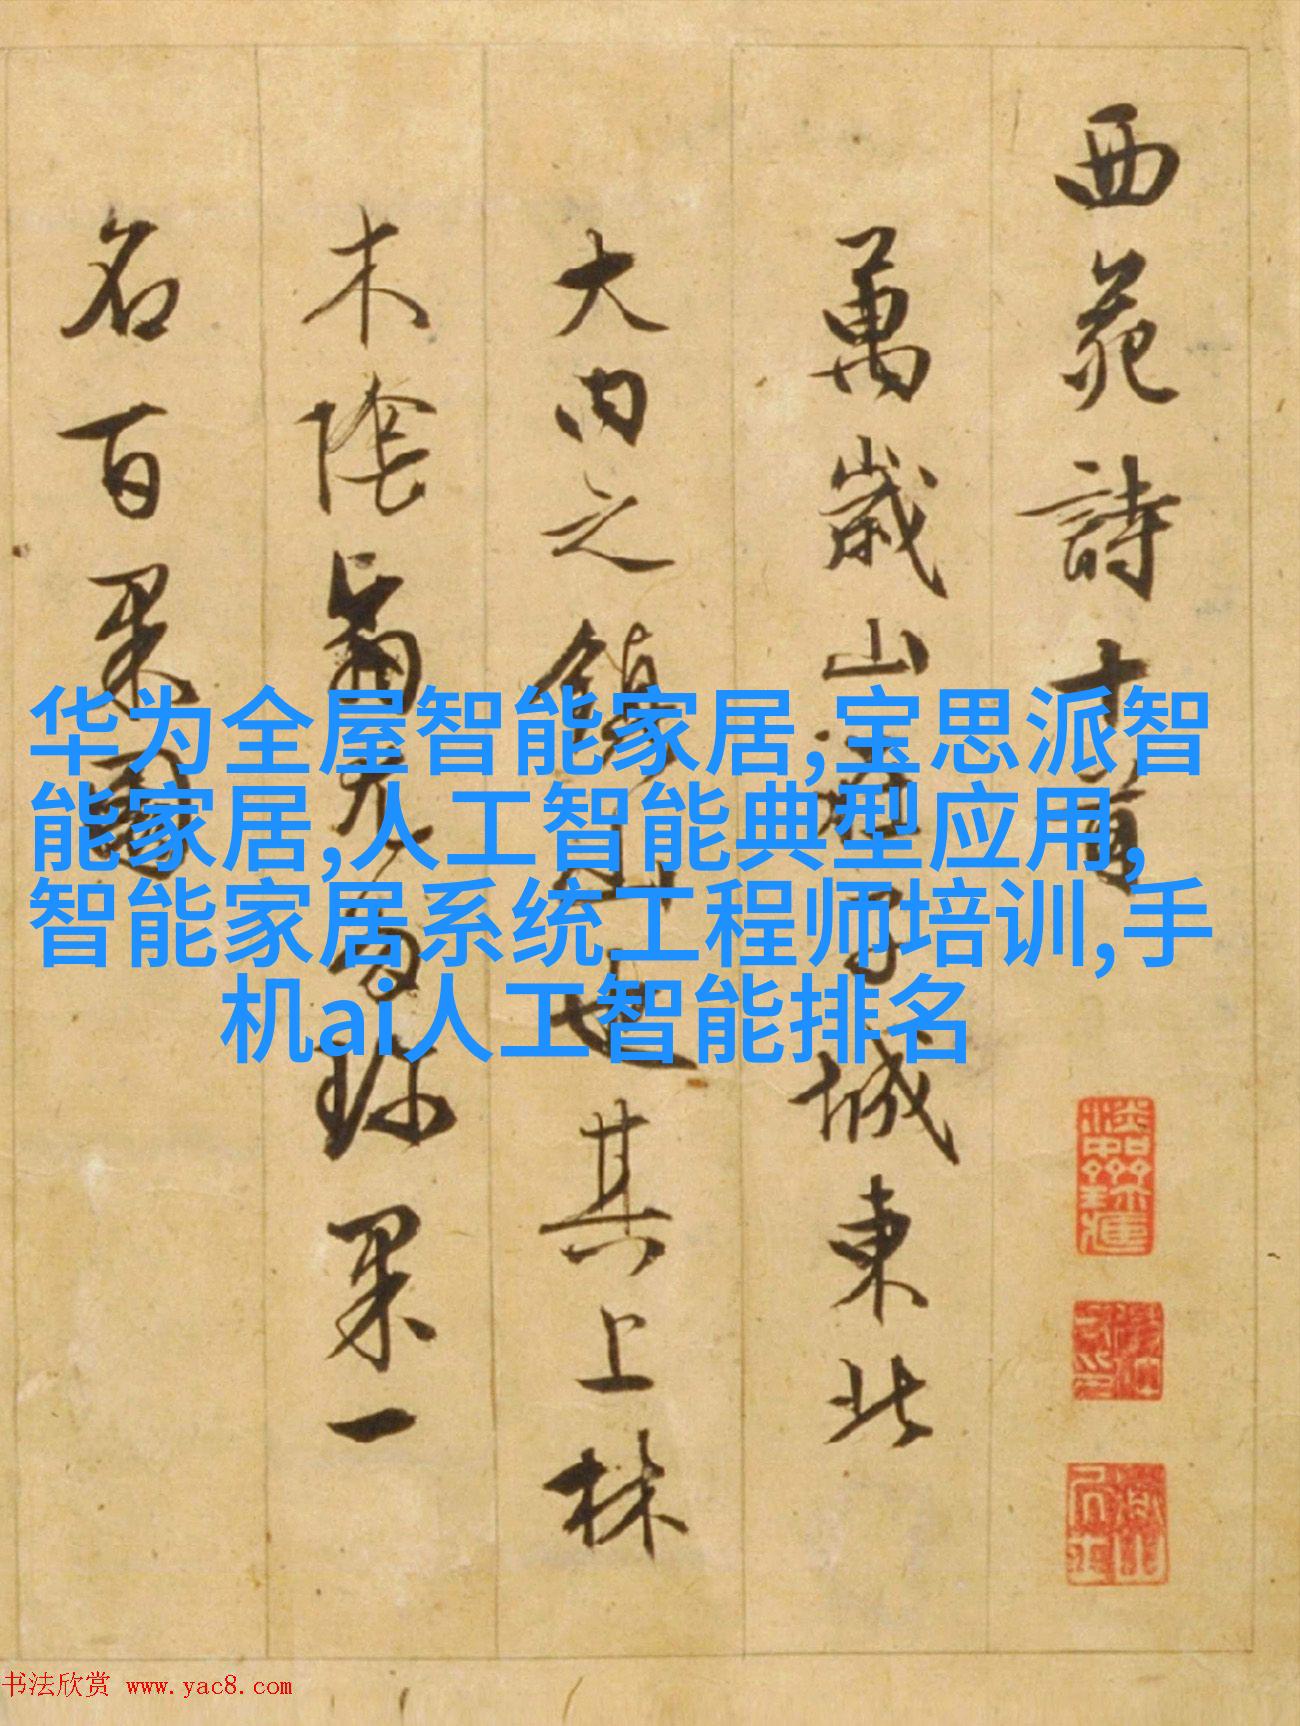 西苑詩十首
萬歲山在子城東北
大内之鎮山也其上林
木陰翳尤多珎果一
名百果園
华为全屋智能家居,宝思派智
能家居,人工智能典型应用,
智能家居系统工程师培训,手
机ai人工智能排名
书法欣赏 www.yac8.com